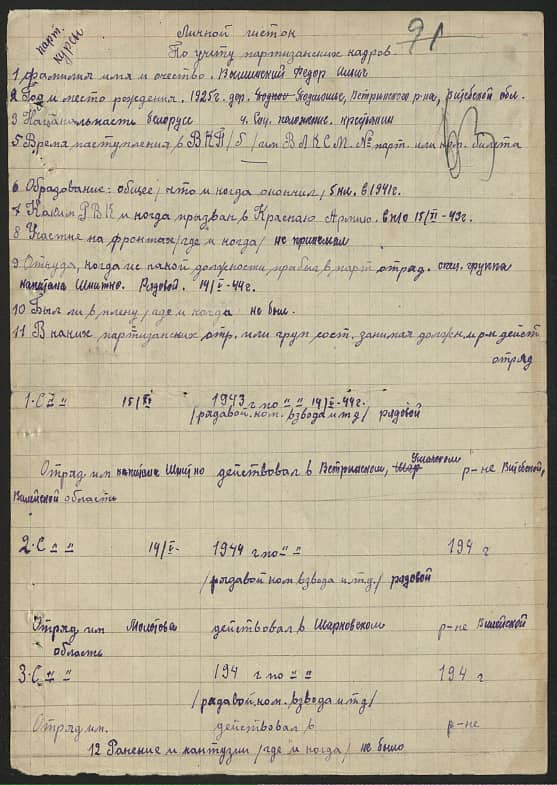 парт. курсы
Личной листок 91
По учёту партизанских кадров
1 фамилия имя и очество. Вышинский Федор
2 Год и место рождения. 1925г. дер. Ветринского р-на, Витебской обл.
3 Национальность белорусс 4. Соц. положение. крестьянин
5 Время наступления в ВКП/б/ или ВЛКСМ. № парт. или ком. билета
6 Образование: общее, что и когда окончил, 5 кл. в 1941г.
7 Каким РВК и когда призван в Красную Армию. в п/о 15/XI-43г.
8 Участие на фронтах/где и когда/ не принемал
9 Откуда, когда и с какой должности прибыл в парт отряд. спец. группа
капитана Шпитно. Рядовой. 14/V-44г.
10 Был ли в плену, где и когда не был.
11 В каких партизанских отр. или груп сост. занимая должн. и р-н дейст
отряд
1. С " " 15/XI 1943 г по " " 14/V-44г.
/рядавой. ком. взвода и т д/ рядовой
Отряд им капитана действовал в Ветринском, Ушачском р-не Витебской,
Вилейской область
2. С " " 14/V- 1944 г по " " 194 г
/рядавой ком взвода и.т.д/ рядовой
Отряд им Молотова действовал в Шарковском р-не Вилейской
область
3. С " " 194 г по " " 194 г
/рядавой. ком. взвода и т д/
Отряд им. действовал в р-не
12 Ранение и кантузии /где и когда/ не было